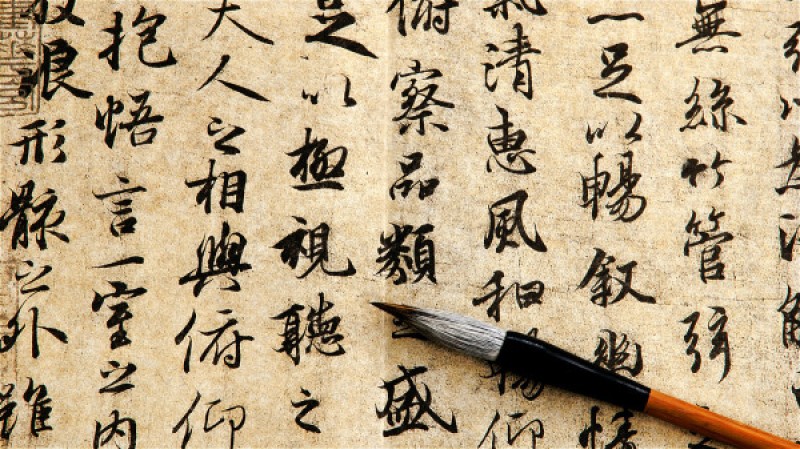 以為流觴
無絲竹管弦之
足以暢叙幽情
氣清惠風和暢仰
俯察品類之盛
足以極視聽之
夫人之相與俯仰
抱悟言一室之內
放浪形骸之外雖